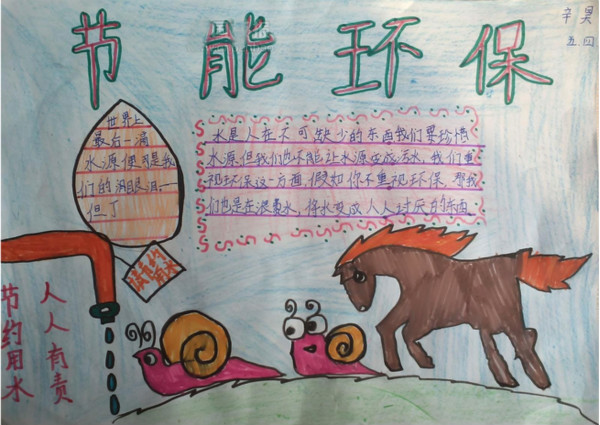 节能环保
辛昊
五四
世界上
最后一滴
水源便可是我
们的泪眼泪
但了
水是人在不可缺少的东西我们要珍惜
水源但我们也不能让水源变成污水,我们重
视环保这一方面,假如你不重视环保,那我
们也是在浪费水,将水变成人人讨厌的东西
节约用水
人人有责